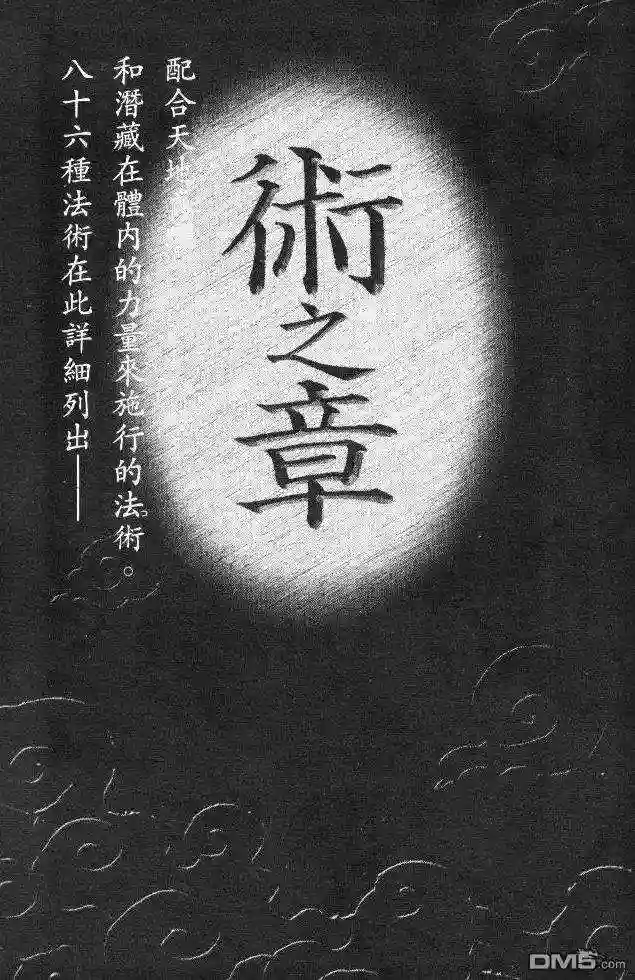 術之章
配合天地
和潛藏在體內的力量來施行的法術。
八十六種法術在此詳細列出——
DM5.com